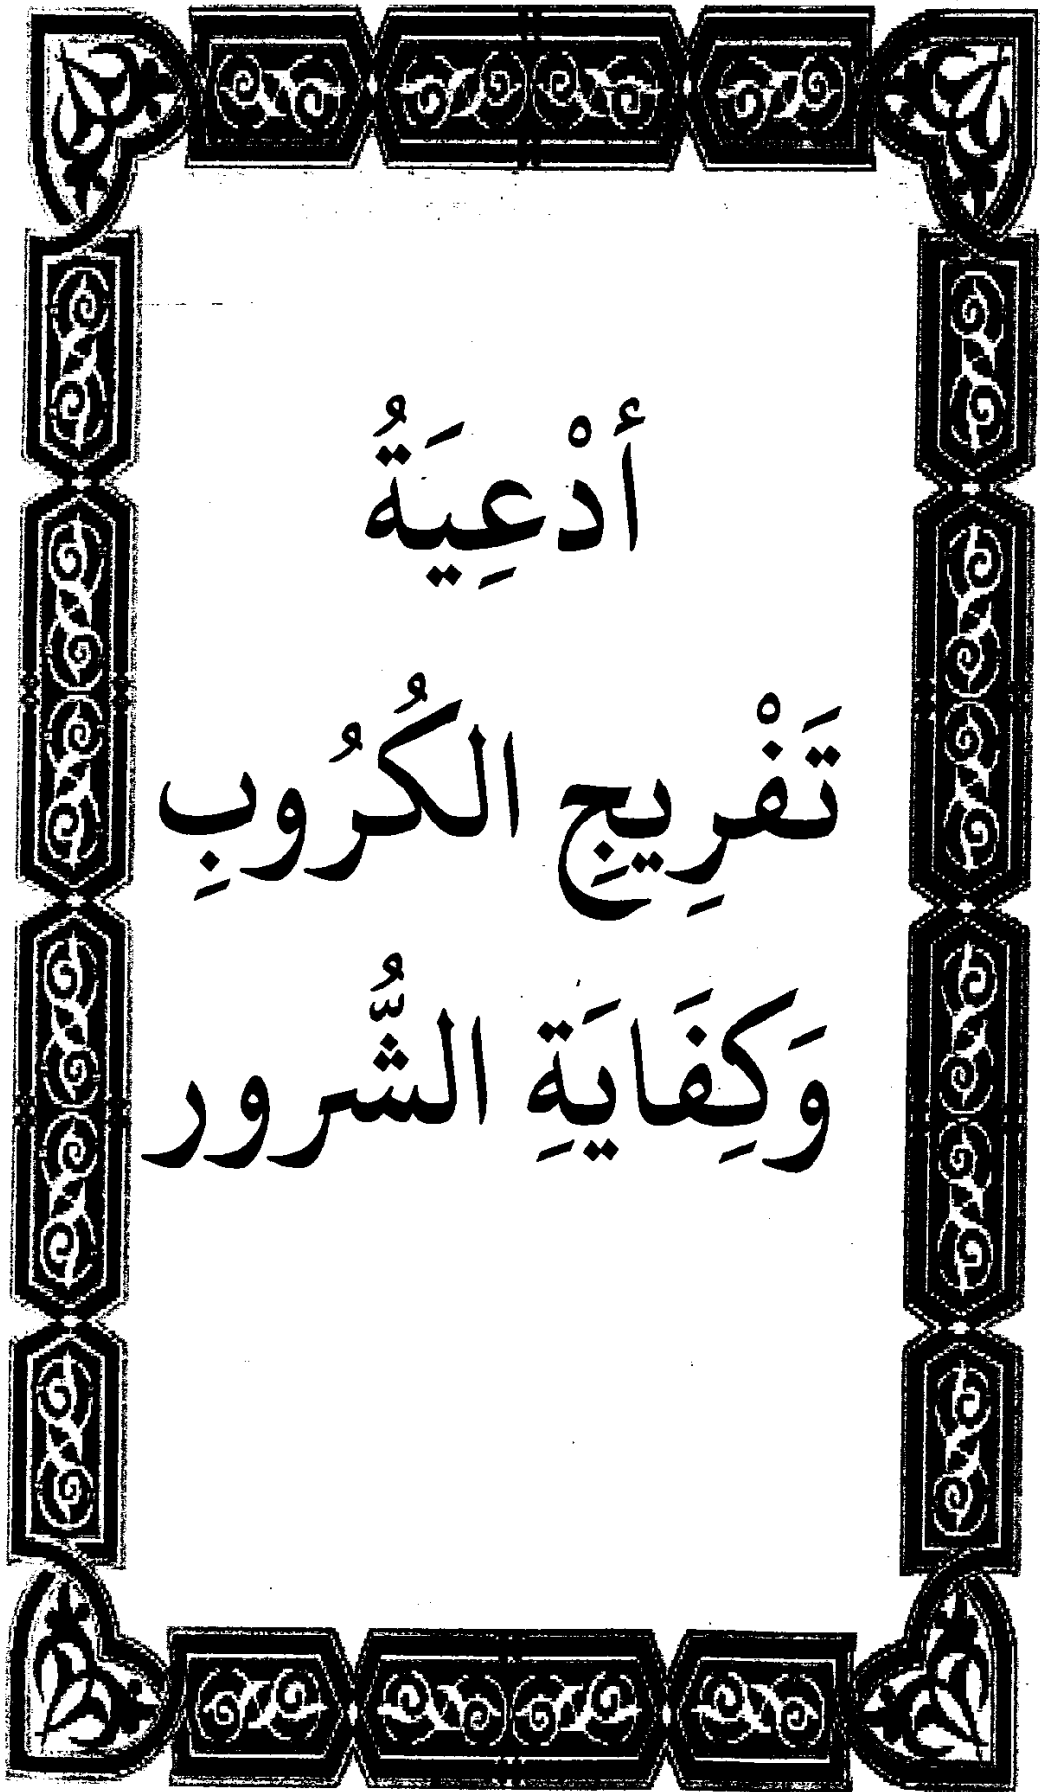 أدْعِيَةُ
تَفْرِيجِ الكُرُوبِ
وَكِفَايَةِ الشُّرور